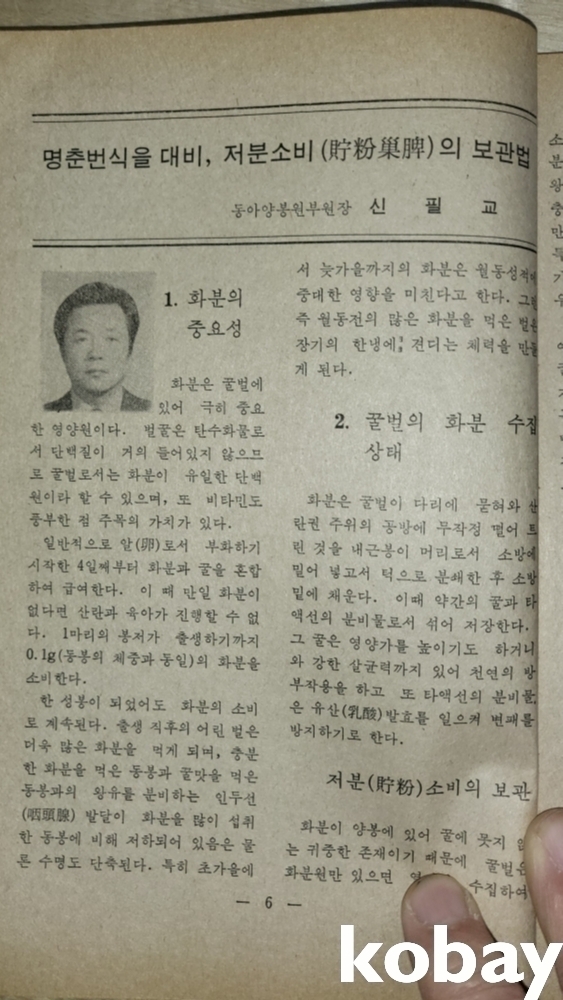 명춘번식을 대비, 저분소비(貯粉巢脾)의 보관법
동아양봉원부원장 신 필 교
1. 화분의
중요성
화분은 꿀벌에
있어 극히 중요
한 영양원이다. 벌꿀은 탄수화물로
서 단백질이 거의 들어있지 않으므
로 꿀벌로서는 화분이 유일한 단백
원이라 할 수 있으며, 또 비타민도
풍부한 점 주목의 가치가 있다.
일반적으로 알(卵)로서 부화하기
시작한 4일째부터 화분과 꿀을 혼합
하여 급여한다. 이 때 만일 화분이
없다면 산란과 육아가 진행할 수 없
다. 1마리의 봉저가 출생하기까지
0.1g(동봉의 체중과 동일)의 화분을
소비한다.
한 성봉이 되었어도 화분의 소비
로 계속된다. 출생 직후의 어린 벌은
더욱 많은 화분을 먹게 되며, 충분
한 화분을 먹은 동봉과 꿀맛을 먹은
동봉과의 왕유를 분비하는 인두선
(咽頭腺) 발달이 화분을 많이 섭취
한 동봉에 비해 저하되어 있음은 물
론 수명도 단축된다. 특히 초가을에
서 늦가을까지의 화분은 월동성적에
중대한 영향을 미친다고 한다. 그런
즉 월동전의 많은 화분을 먹은 벌은
장기의 한냉에 견디는 체력을 만들
게 된다.
2. 꿀벌의 화분 수집
상태
화분은 꿀벌이 다리에 묻혀와 산
란권 주위의 공방에 무작정 떨어 트
린 것을 내근봉이 머리로서 소방에
밀어 넣고서 턱으로 분쇄한 후 소방
밑에 채운다. 이때 약간의 꿀과 타
액선의 분비물로서 섞어 저장한다.
그 꿀은 영양가를 높이기도 하거니
와 강한 살균력까지 있어 천연의 방
부작용을 하고 또 타액선의 분비물
은 유산(乳酸)발효를 일으켜 변패를
방지하기로 한다.
저분(貯粉)소비의 보관
화분이 양봉에 있어 꿀에 못지 않
는 귀중한 존재이기 때문에 꿀벌은
화분원만 있으면 수집하여
— 6 —
kobay